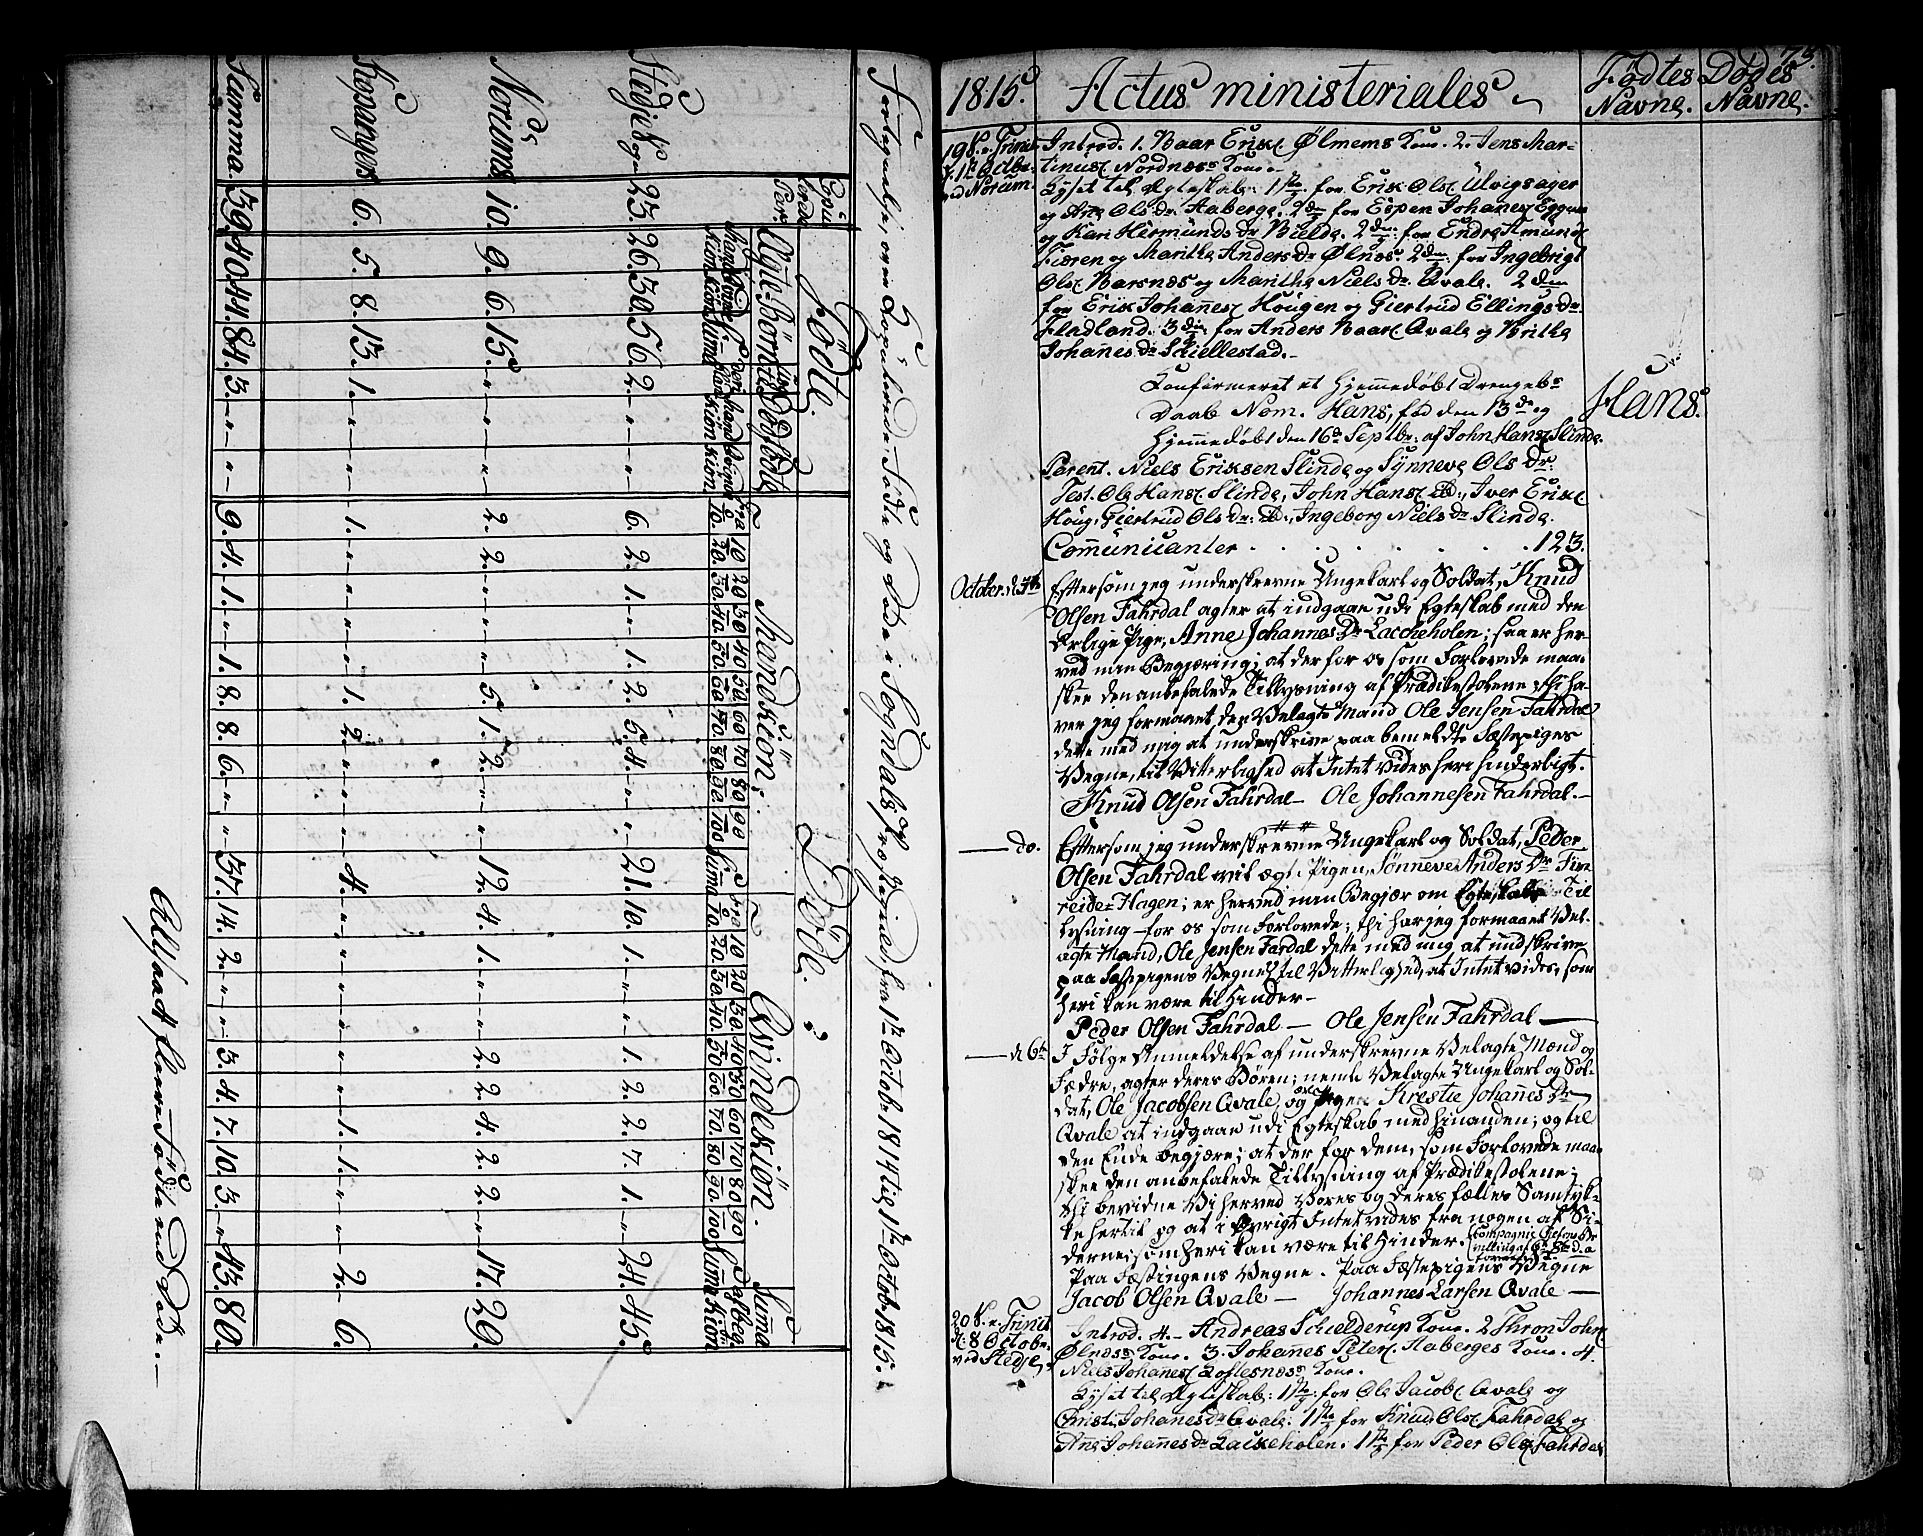 Fortegnelse, over Copulerede, Födte og Döde i Sogndals Præstegield, fra 1te Octob: 1814 til 1te Octob: 1815.
Copulerede Par. Födte. Döde.
Ægte-Börn Uægte Börn Dödfödte Mandkiön. Qvindekiön. Suma
Mandkiön Qvindekiön Suma Mandkiön Qvindekiön fra 0 10. 10 20. 20 30. 30 40. 40 50. 50 60. 60 70. 70 80. 80 90. 90 100 Suma fra 0 10. 10 20. 20 30. 30 40. 40 50. 50 60. 60 70. 70 80. 80 90. 90 100 Suma af begge Kiön
Stedje Sogn 23. 26. 30. 56. 2. " " " 6. 2. 1. " 1. 2. 5. 4. " " 21. 10. 1. " " 1. 2. 2. 7. 1. " 24. 45.
Norums do 10. 9. 6. 15. " " " " 2. 2. " " " 5. 1. 2. " " 12. 4. 1. " " 2. 2. 4. 2. 2. " 17. 29.
Kopanges 6. 5. 8. 13. 1. " " " 1. " " " " 1. 2. " " " 4. " " " " " " 1. 1. " " 2. 6.
Summa 39. 40. 44. 84. 3. " " " 9. 4. 1. " 1. 8. 8. 6. " " 37. 14. 2. " " 3. 4. 7. 10. 3. " 43. 80.
Altsaa 4 flere Födte end Döde.
73.
1815. Actus ministeriales Födtes Navne. Dödes Navne.
19 S. e. Trinit
d. 1t Octbr
ved Norum.
Introd. 1. Baar Erikſ. Ølmems Kone. 2. Jens Mar-
tinusſ. Nordnæs Kone.
Lyst til Ægteskab: 1ste for Erik Olsſ Ulvigsager
og Ane Ols dr Aaberge. 2den for Espen Johanesſ Eggum
og Kari Hermunds dr Bielde. 2den for Endre Amundſ
Fiæren og Maritha Anders dr Ølnæs. 2den for Ingebrigt
Olsſ. Barsnæs og Maritha Niels dr Qvale. 2den
for Erik Johannesſ Hougen og Giertrud Ellings dr
Fladland. 3die for Anders Baarſ Qvale og Britha
Johannes dr Skiellestad.
Confirmeret et Hjemmedöbt Drengeb:s
Daab Nom. Hans, föd den 13de og
Hjemmedöbt den 16de Septbr. af John Hansſ Slinde.
Hans.
Parent. Niels Eriksen Slinde og Synneve Ols dr.
Test. Ole Hansſ. Slinde, John Hansſ ib., Iver Erikſ
Houg, Giertrud Ols dr. ib., Ingeborg Niels dr Slinde.
Communicanter . . . . . . . 123.
October, d. 5te
Eftersom jeg underskrevne Ungekarl og Soldat, Knud
Olsen Fahrdal agter at indgaae udi Egteskab med den
Ærlige Pige, Anne Johannes Dr Laccheholen; saa er her
ved min Begjæring; at der for os som Forlovede maa-
skee den anbefalede Tillysning af Prædikestolene; thi ha-
ver jeg formaaet den Velagte Mand Ole Jensen Fahrdal
dette med mig at underskrive paa bemeldte Fæstepiges
Vegne, til Vitterlighed at Intet vides heri hinderligt.
Knud Olsen Fahrdal — Ole Johannesen Fahrdal.
do.
Eftersom jeg underskrevne Ungekarl og Soldat, Peder
Olsen Fahrdal vil ægte Pigen, Sønneve Anders Dr Fim-
reide-Hagen; er herved min Begjær om Egteskabs Til
lysning for os som Forlovede; thi har jeg formaaet Vel-
agte Mand, Ole Jensen Fardal dette med mig at undskrive
paa Fæstepigens Vegne til Vitterlighed, at Intet vides, som
heri kan være til Hinder.
Peder Olsen Fahrdal — Ole Jensen Fahrdal —
d 6te
I Fölge Anmeldelse af underskrevne Velagte Mænd og
Fædre, agter deres Bören; nemlig Velagte Ungekarl og Sol-
dat, Ole Jacobsen Qvale, og Pigen Krestie Johannes Dr
Qvale at indgaae udi Egteskab med hinanden; og til
den Ende begjære; at der for dem, som Forlovede maa
skee den anbefalede Tillysning af Prædikestolene;
thi bevidne Vi herved Vores og deres fælles Samtyk-
ke hertil og at i øvrigt Intet vides fra nogen af Si-
derne, som heri kan være til Hinder.
Paa Fæstingens Vegne. Paa Fæstepigens Vegne
Jacob Olsen Qvale — Johannes Larsen Qvale —
20 S. e. Trinit
d: 8 Octobr
ved Stedje.
Introd. 4. Andreas Schielderup Kone. 2 Thron Johnſ
Ølnæs Kone. 3. Johanes Peterſ. Aaberges Kone. 4.
Niels Johanesſ Loftesnæs Kone.
Lyst til Ægteskab: 1ste for Ole Jacobſ Qvale og
Christi Johanes dr Qvale. 1ste for Knud Olsſ Fahrdal og
Ane Johannes dr Lackeholen. 1ste for Peder Olsſ Fahrdal